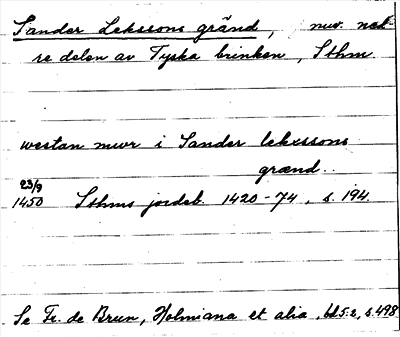 Sander Lekssons gränd, nuv. ned-
re delen av Tyska brinken, Sthm.
westan mwr i Sander lekxssons
grænd..
23/9
1450 Sthms jordeb. 1420-74, s. 194.
Se Fr. de Brun, Holmiana et alia, bd 5:2, s. 498